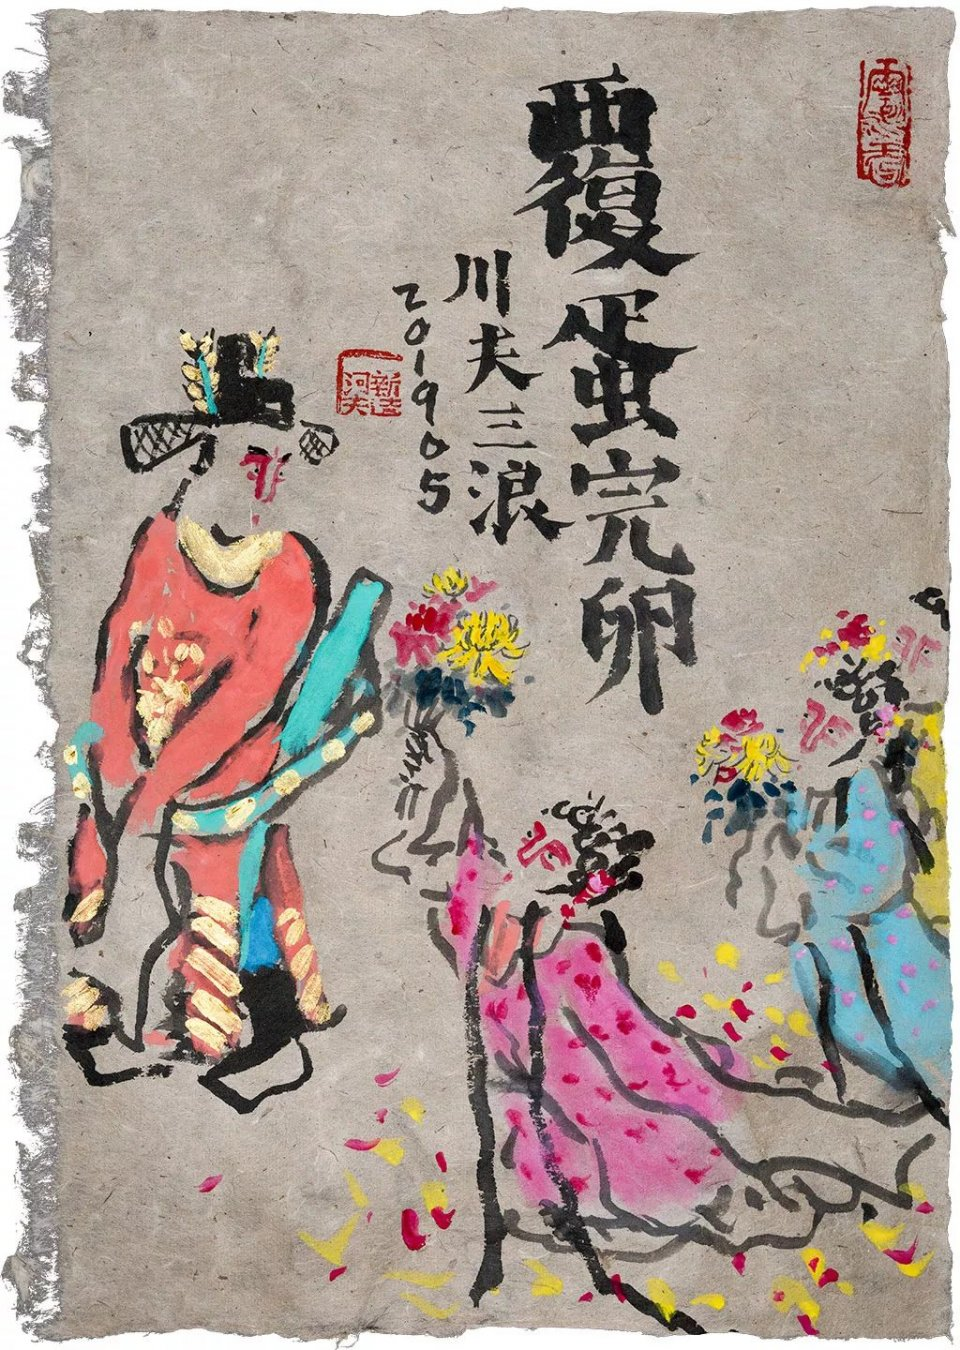 覆蛋完卵
川夫三浪
201905